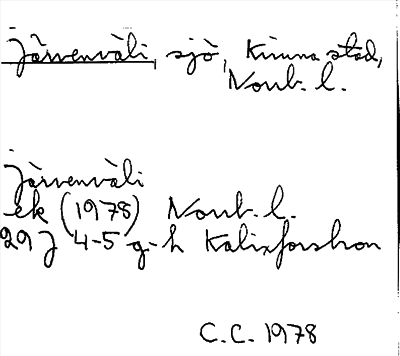 Järvenväli, sjö, Kiruna stad,
Norrb. l.
Järvenväli
ek (1978) Norrb. l.
29 J 4-5 g-h Kalixforsbron
C.C. 1978